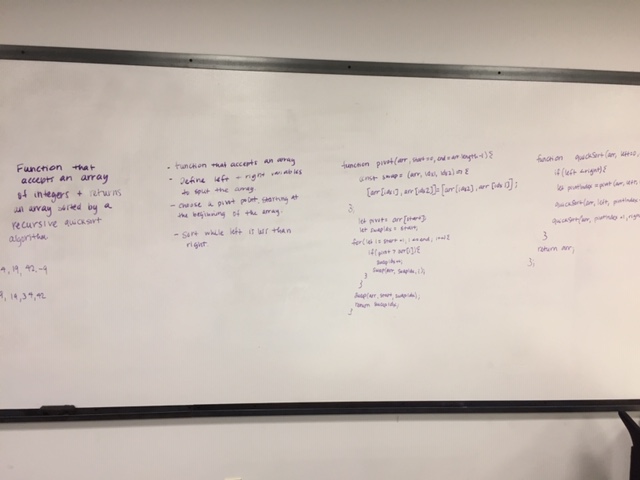 Function that
accepts an array
of integers + returns
an array sorted by a
recursive quicksort
algorithm
4, 19, 42, -9
9, 14, 39, 42
- function that accepts an array
- Define left + right variables
to split the array.
- choose a pivot point, starting at
the beginning of the array.
- Sort while left is less than
right
function pivot(arr, start=0, end=arr.length-1) {
const swap = (arr, idx1, idx2) => {
[arr[idx1], arr[idx2]] = [arr[idx2], arr[idx1]];
};
let pivot = arr[start];
let swapIdx = start;
for(let i= start+1; i <= end; i++) {
if(pivot > arr[i]) {
swapIdx++;
swap(arr, swapIdx, i);
}
}
swap(arr, start, swapIdx);
return swapIdx;
}
function quickSort(arr, left=0,
if(left < right) {
let pivotIndex = pivot(arr, left,
quickSort(arr, left, pivotIndex
quickSort(arr, pivotIndex +1, right
}
return arr;
};